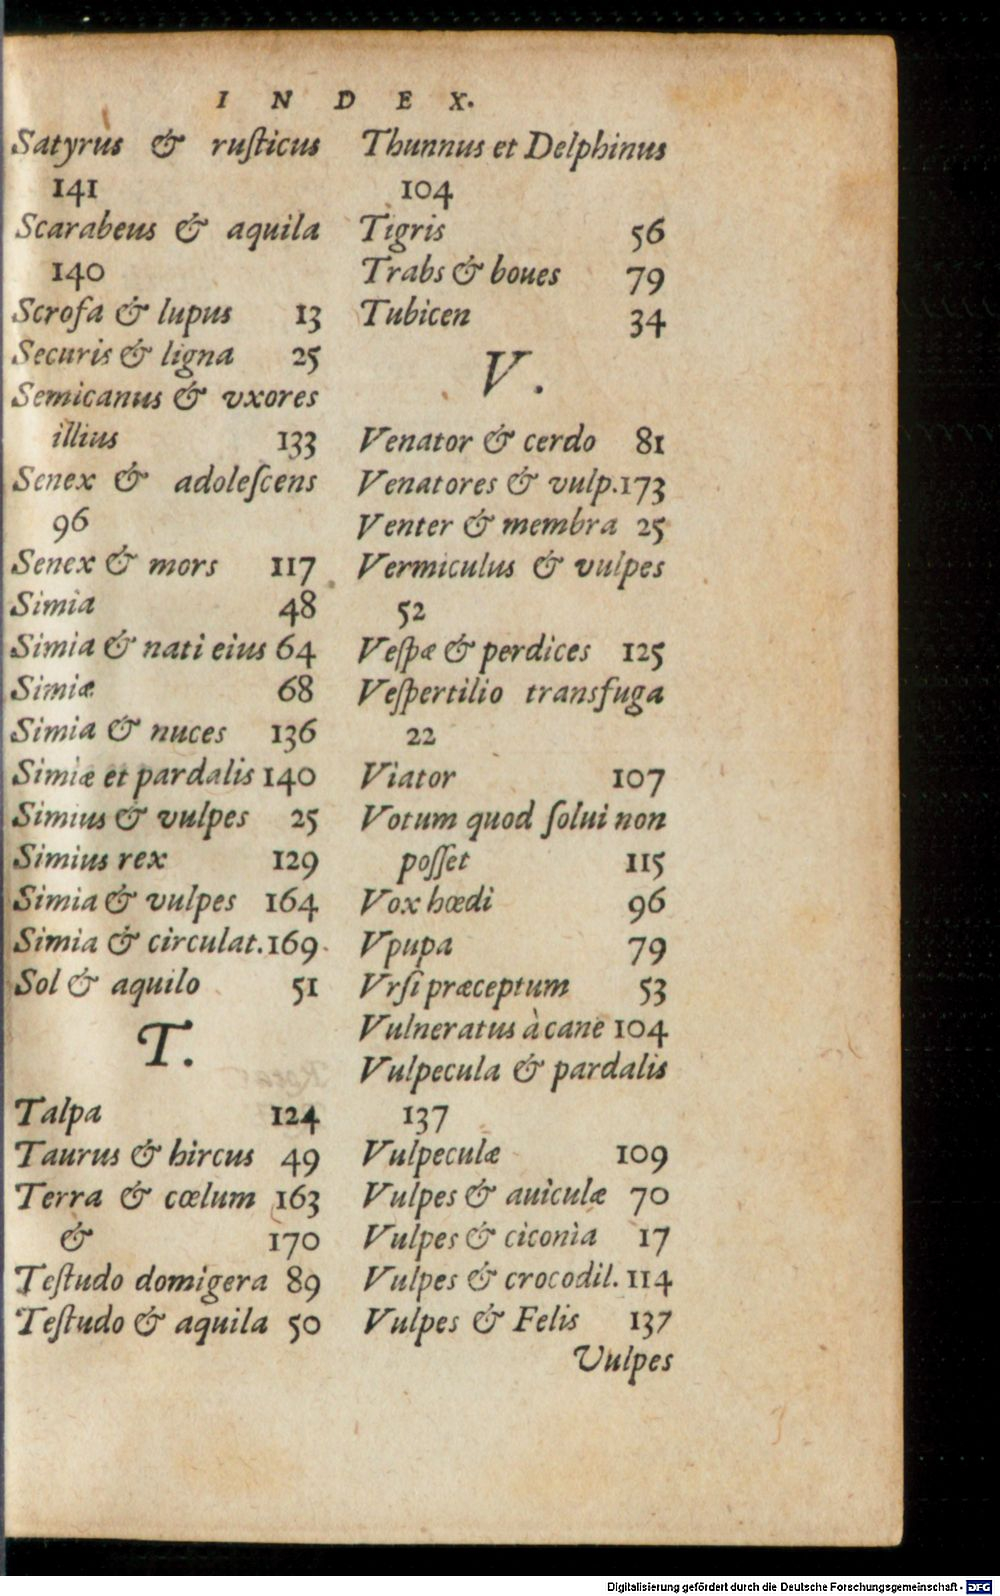 INDEX.
Satyrus & ruſticus
141
Scarabeus & aquila
140
Scrofa & lupus 13
Securis & ligna 25
Semicanus & vxores
illius 133
Senex & adoleſcens
96
Senex & mors 117
Simia 48
Simia & nati eius 64
Simiæ 68
Simia & nuces 136
Simiæ et pardalis 140
Simius & vulpes 25
Simius rex 129
Simia & vulpes 164
Simia & circulat. 169
Sol & aquilo 51
T.
Talpa 124
Taurus & hircus 49
Terra & cœlum 163
& 170
Teſtudo domigera 89
Teſtudo & aquila 50
Thunnus et Delphinus
104
Tigris 56
Trabs & boues 79
Tubicen 34
V.
Venator & cerdo 81
Venatores & vulp. 173
Venter & membra 25
Vermiculus & vulpes
52
Veſpæ & perdices 125
Veſpertilio transfuga
22
Viator 107
Votum quod ſolui non
poſſet 115
Vox hœdi 96
Vpupa 79
Vrſi præceptum 53
Vulneratus à cane 104
Vulpecula & pardalis
137
Vulpeculæ 109
Vulpes & auiculæ 70
Vulpes & ciconia 17
Vulpes & crocodil. 114
Vulpes & Felis 137
Vulpes
Digitalisierung gefördert durch die Deutsche Forschungsgemeinschaft - DFG